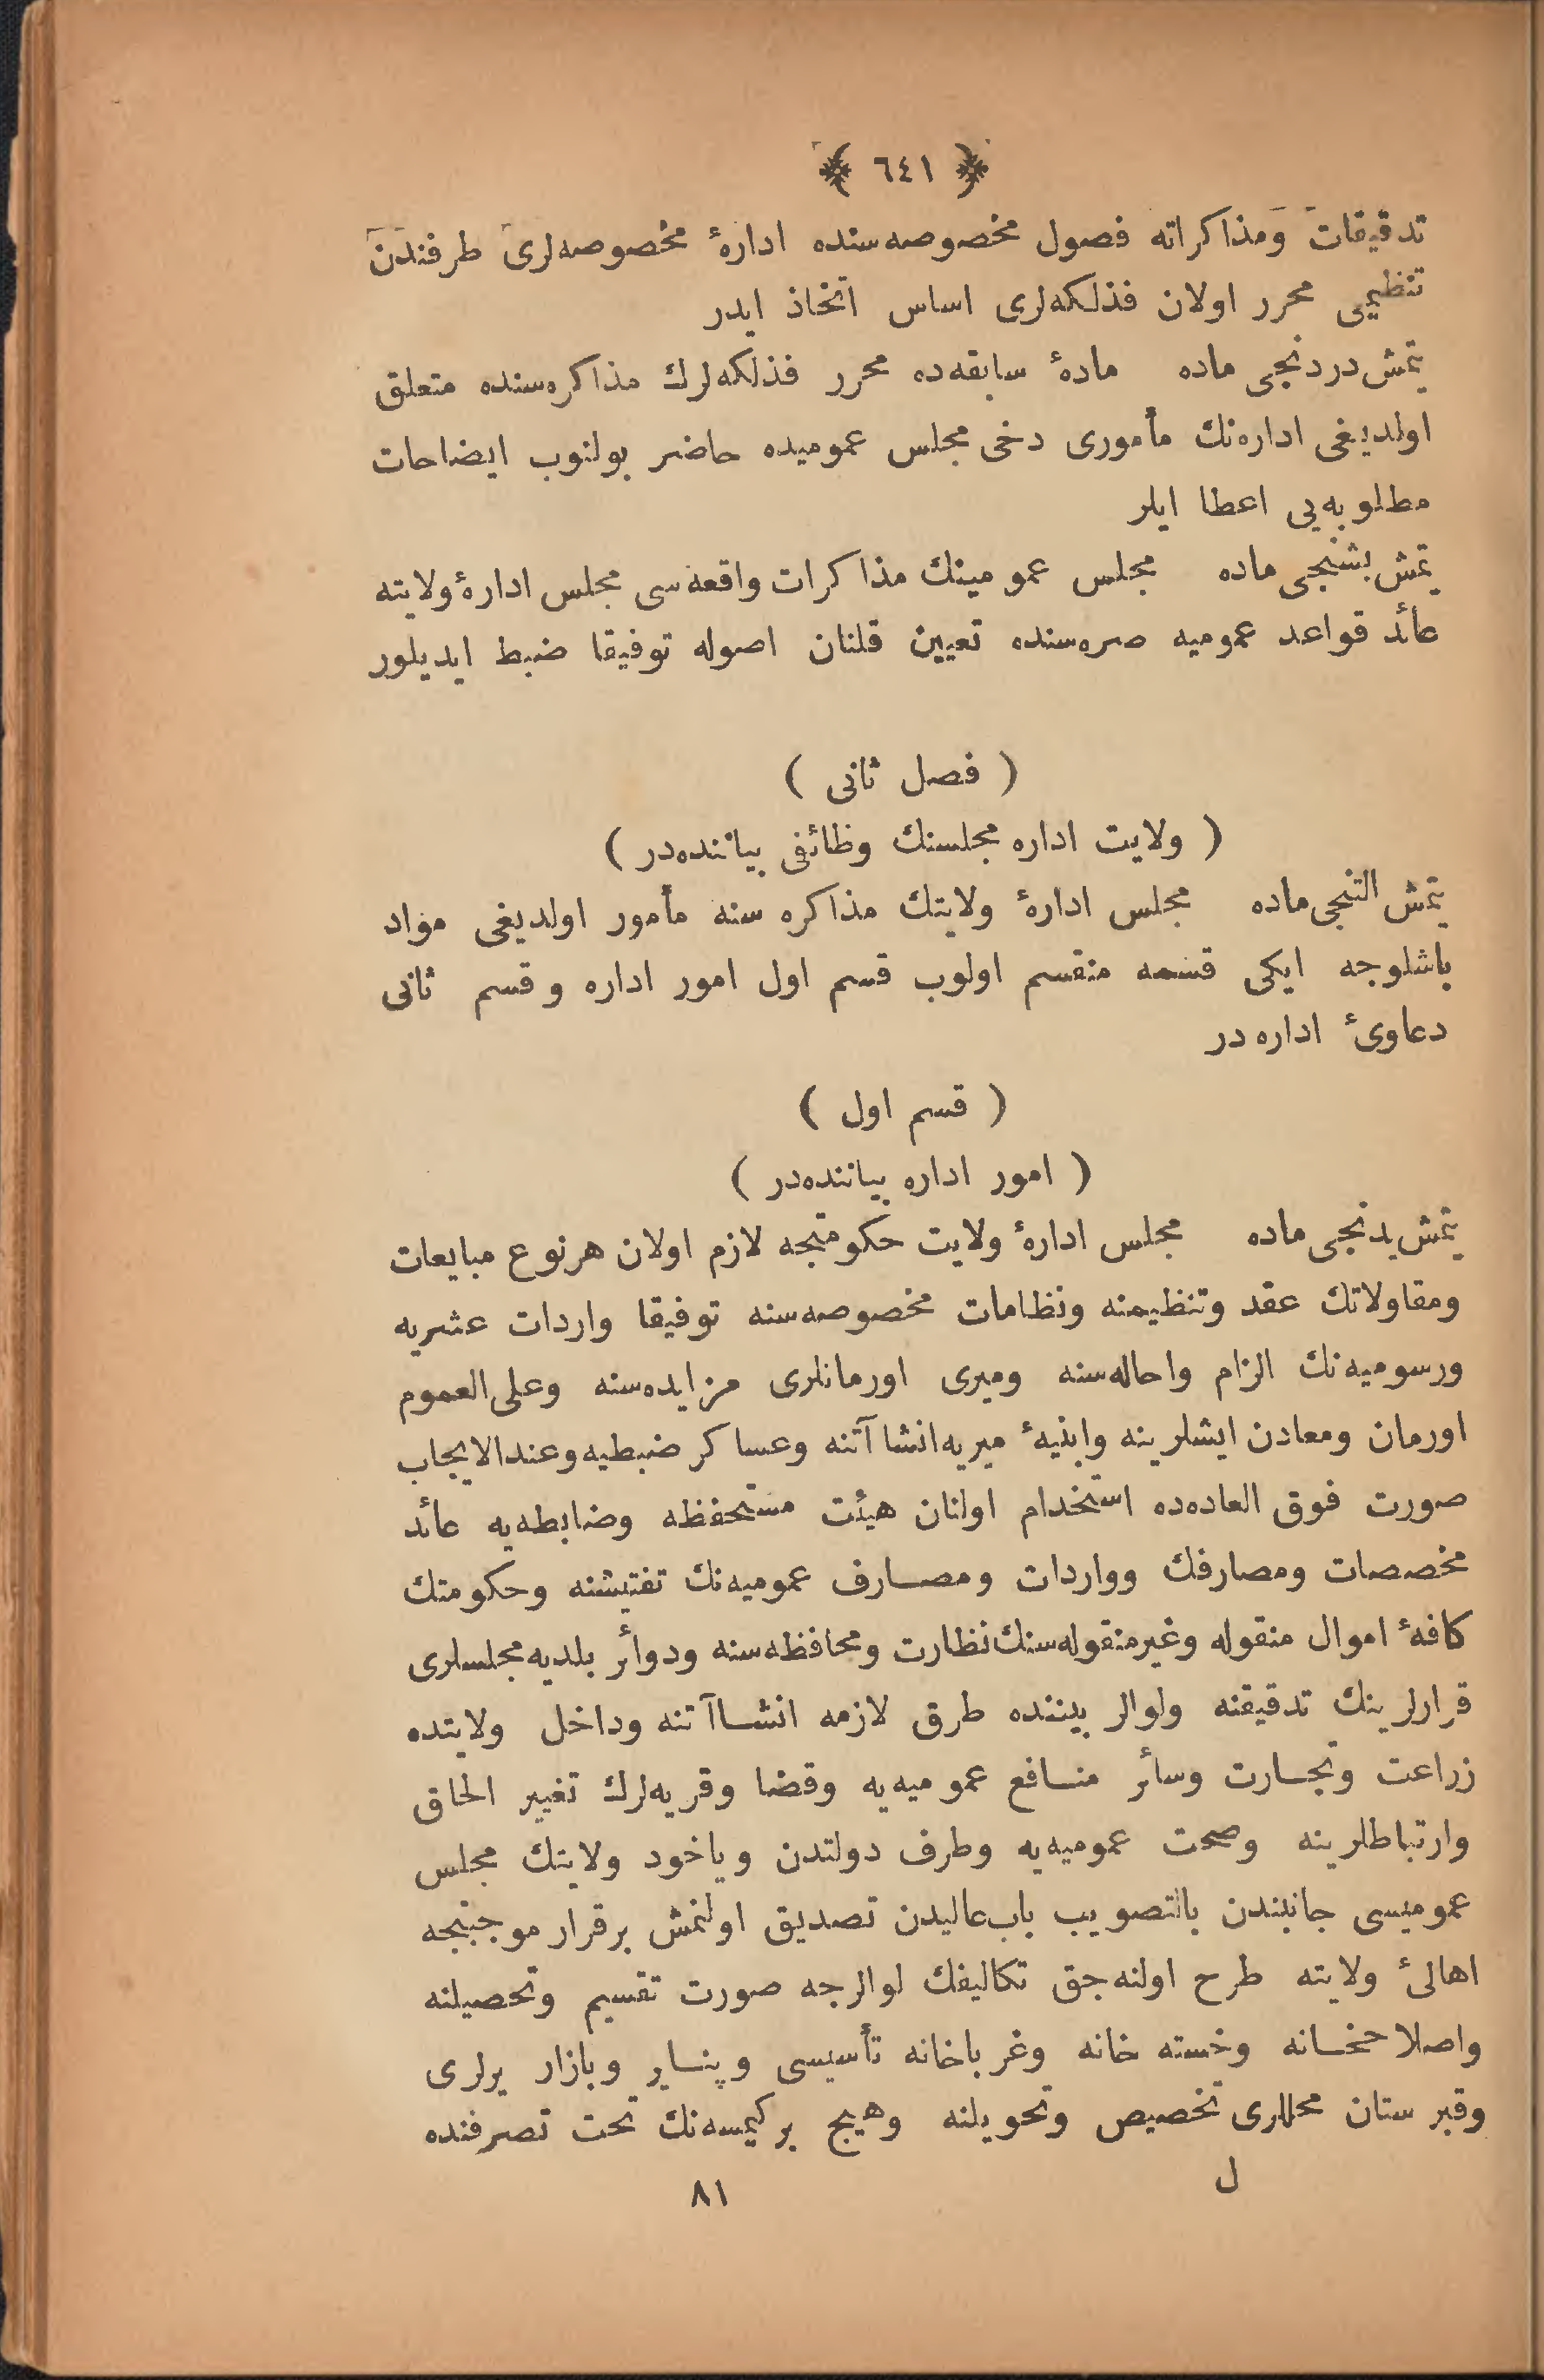 ﴿ ٦٤١ ﴾
تدقیقات ومذاکراته فصول مخصوصه‌سنده ادارهٔ مخصوصه‌لری طرفندن
تنظیمی محرر اولان فذلکه‌لری اساس اتخاذ ایدر
یتمش دردنجی ماده مادهٔ سابقه‌ده محرر فذلکه‌لرك مذاکره‌سنده متعلق
اولدیغی اداره‌نك مأموری دخی مجلس عمومیده حاضر بولنوب ایضاحات
مطلوبه‌یی اعطا ایلر
یتمش بشنجی ماده مجلس عمومینك مذاکرات واقعه‌سی مجلس ادارهٔ ولایته
عائد قواعد عمومیه صره‌سنده تعیین قلنان اصوله توفیقا ضبط ایدیلور
( فصل ثانی )
( ولایت اداره مجلسنك وظائفی بیاننده‌در )
یتمش التنجی ماده مجلس ادارهٔ ولایتك مذاکره سنه مأمور اولدیغی مواد
باشلوجه ایکی قسمه منقسم اولوب قسم اول امور اداره و قسم ثانی
دعاویٔ اداره در
( قسم اول )
( امور اداره بیاننده‌در )
یتمش یدنجی ماده مجلس ادارهٔ ولایت حکومتجه لازم اولان هرنوع مبایعات
ومقاولاتك عقد وتنظیمنه ونظامات مخصوصه‌سنه توفیقا واردات عشریه
ورسومیه‌نك الزام واحاله‌سنه ومیری اورمانلری مزایده‌سنه وعلی‌العموم
اورمان ومعادن ایشلرینه وابنیهٔ میریه انشاآتنه وعساکر ضبطیه وعندالایجاب
صورت فوق العاده‌ده استخدام اولنان هیئت مستحفظه وضابطه‌یه عائد
مخصصات ومصارفك وواردات ومصارف عمومیه‌نك تفتیشنه وحکومتك
کافهٔ اموال منقوله وغیرمنقوله‌سنك نظارت ومحافظه‌سنه ودوائر بلدیه مجلسلری
قرارلرینك تدقیقنه ولوالر بیننده طرق لازمه انشاآتنه وداخل ولایتده
زراعت وتجارت وسائر منافع عمومیه‌یه وقضا وقریه‌لرك تغییر الحاق
وارتباطلرینه وصحت عمومیه‌یه وطرف دولتدن ویاخود ولایتك مجلس
عمومیسی جانبندن بالتصویب باب‌عالیدن تصدیق اولنمش برقرار موجبنجه
اهالیٔ ولایته طرح اولنه‌جق تکالیفك لوالرجه صورت تقسیم وتحصیلنه
واصلاحخانه وخسته خانه وغرباخانه تأسیسی وپنایر وبازار یرلری
وقبرستان محللری تخصیص وتحویلنه وهیچ برکیمسه‌نك تحت تصرفنده
ل ٨١